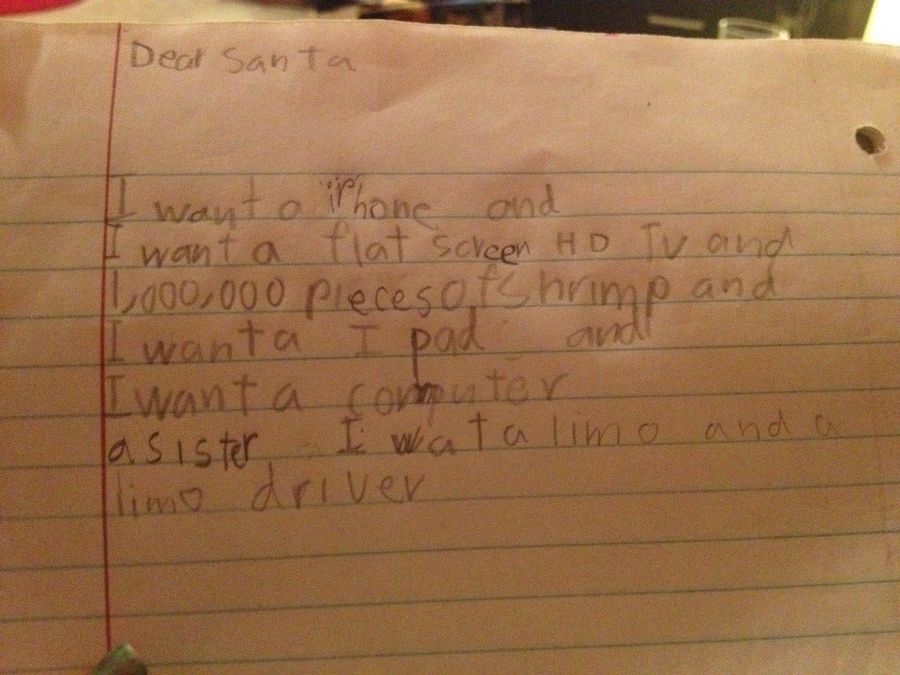 Dear Santa
I want a iPhone and
I want a flat screen HD TV and
1,000,000 pieces of shrimp and
I want a I pad and
I want a computer
a sister I wat a limo and a
limo driver